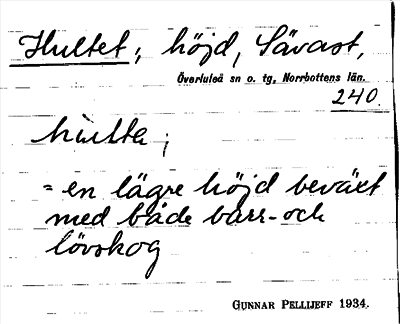 Hultet; höjd, Sävast,
Överluleå sn o. tg, Norrbottens län.
240
hulta;
= en lägre höjd beväxt
med både barr- och
lövskog
GUNNAR PELLIJEFF 1934.